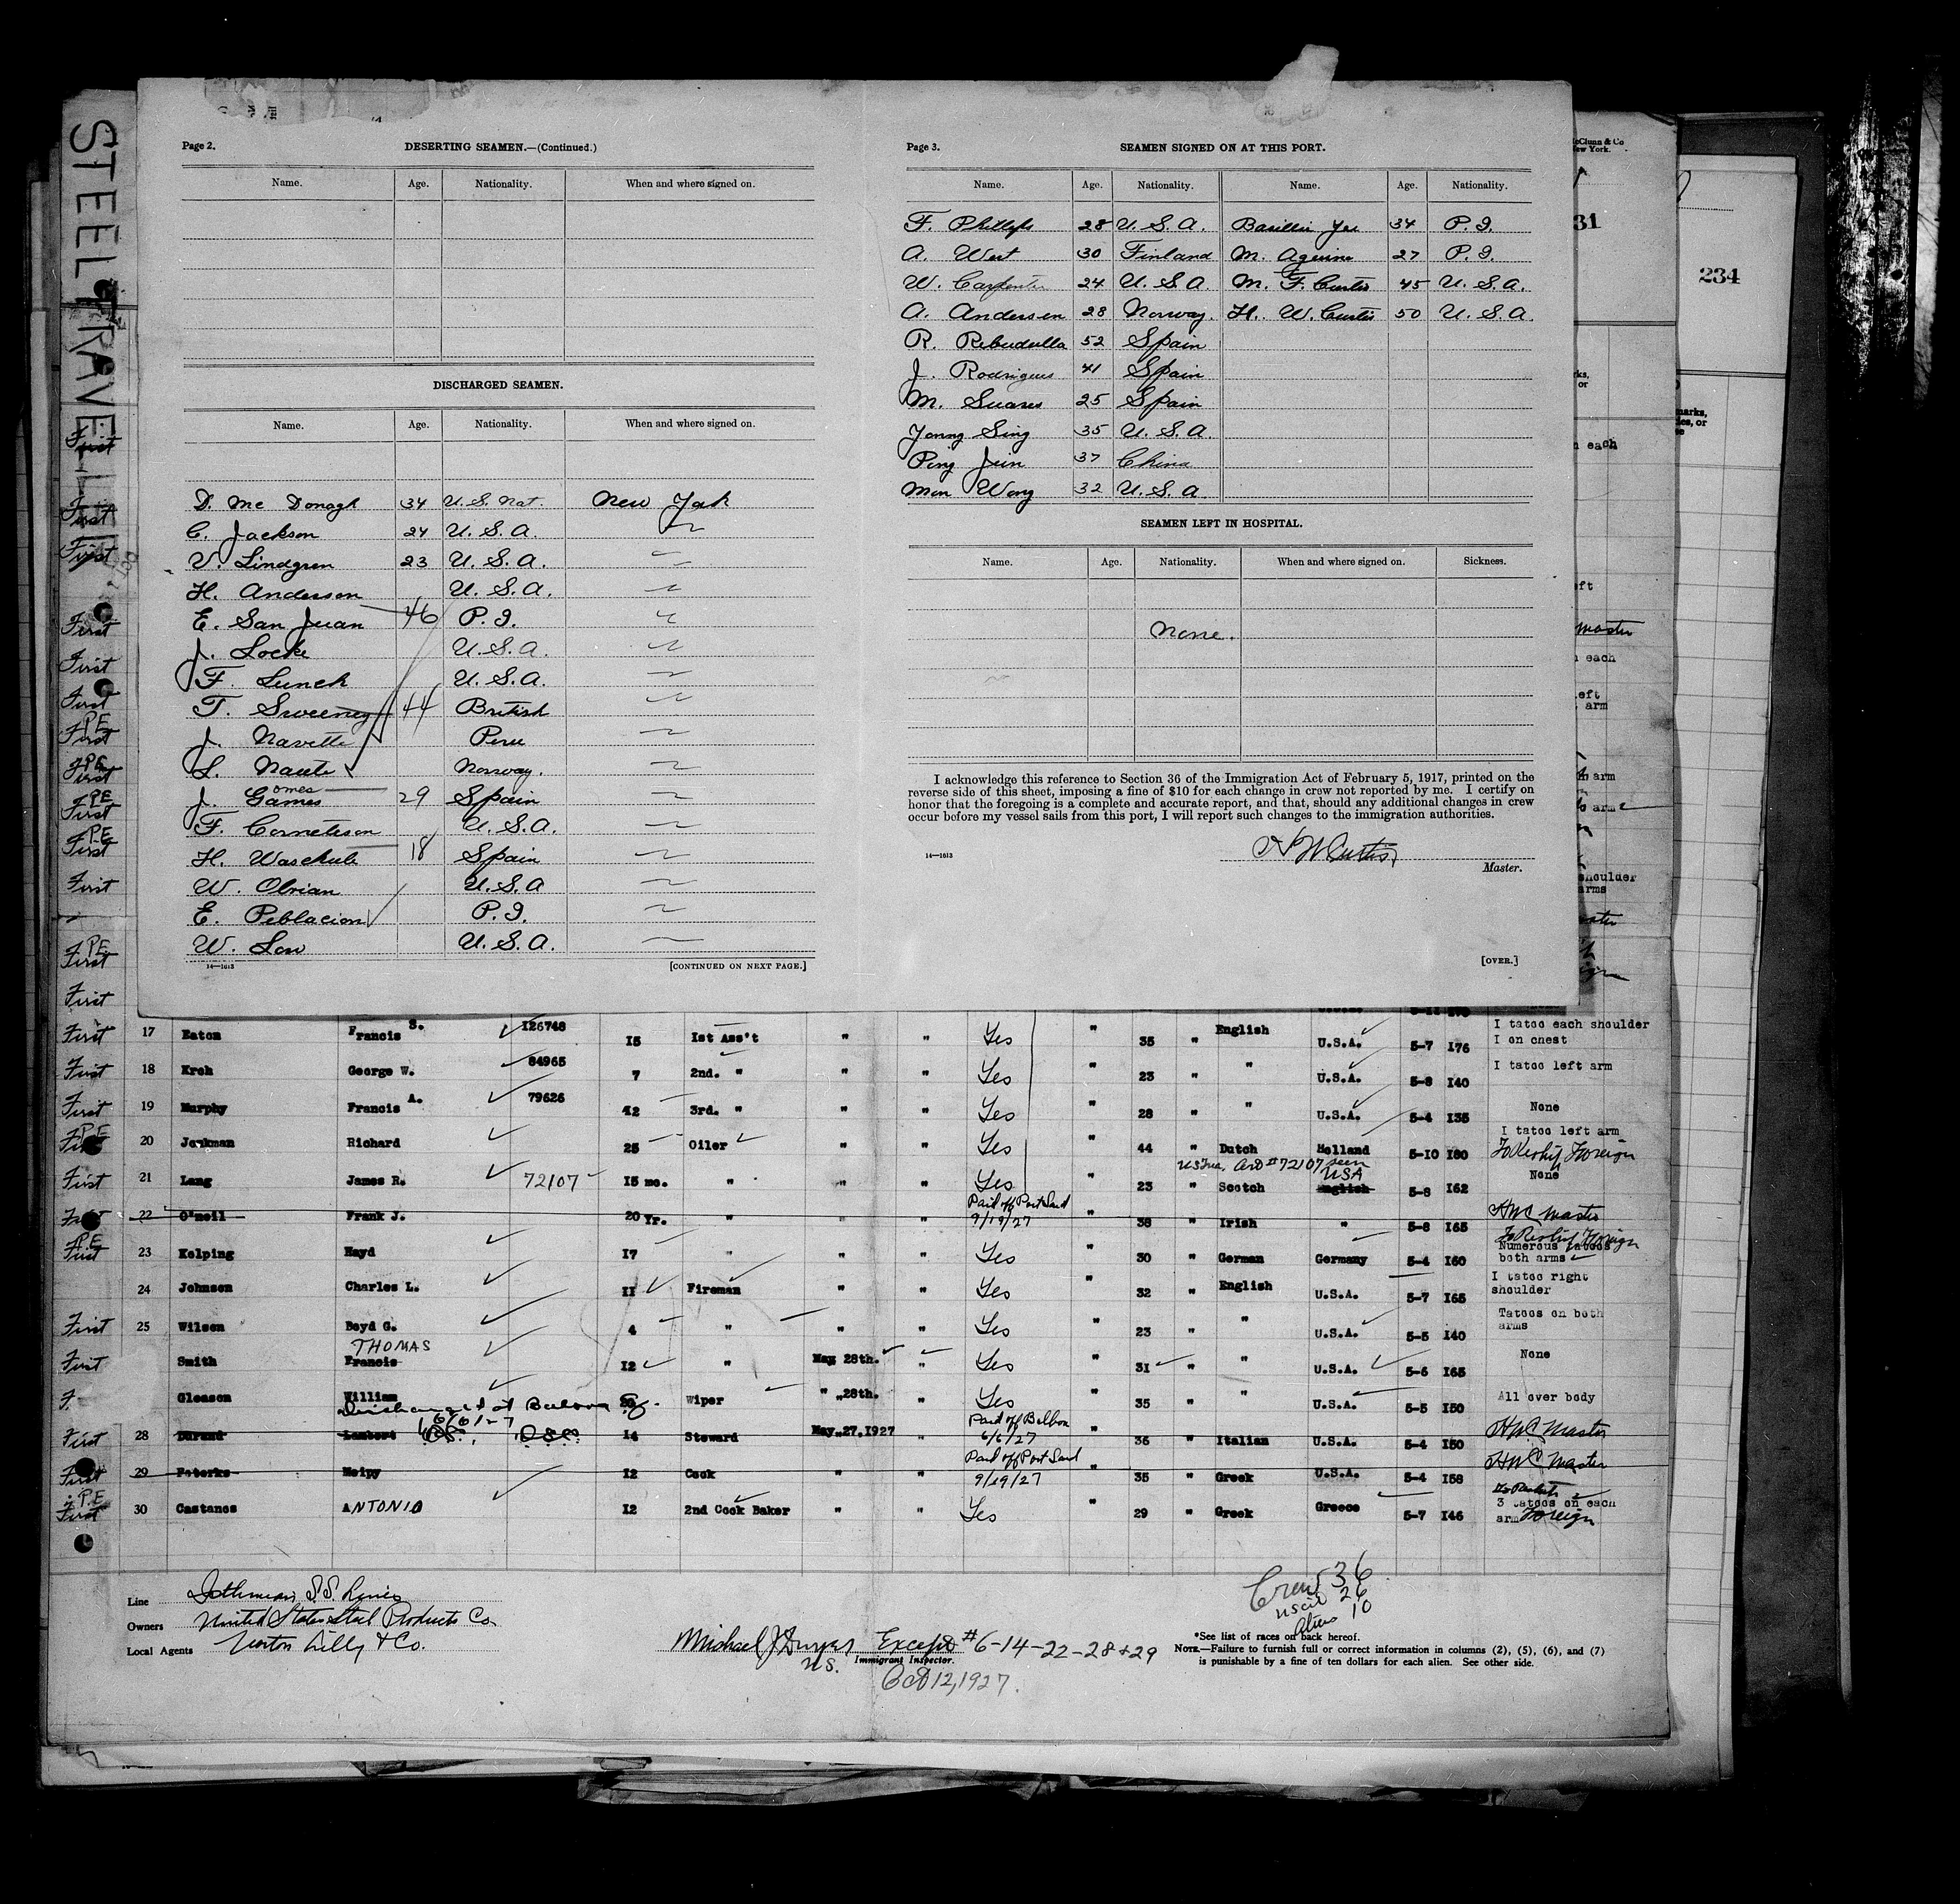 STEEL TRAVELLER
Page 2.
DESERTING SEAMEN.—(Continued.)
Name. Age. Nationality. When and where signed on.
DISCHARGED SEAMEN.
Name. Age. Nationality. When and where signed on.
D. Mc Donagh 34 U.S. Nat. New York
C. Jackson 24 U.S.A. "
V. Lindgren 23 U.S.A. "
H. Anderson U.S.A. "
E. San Juan 46 P.I. "
J. Locke U.S.A. "
F. Lunch U.S.A. "
T. Sweeney 44 British "
J. Navette Peru "
L. Naute Norway. "
omes
J. Games 29 Spain "
F. Cornetson U.S.A. "
H. Waschule 18 Spain "
W. Obrian U.S.A "
E. Peblacion P.I. "
W. Low U.S.A. "
14—1613
[CONTINUED ON NEXT PAGE.]
Page 3.
SEAMEN SIGNED ON AT THIS PORT.
Name. Age. Nationality. Name. Age. Nationality.
F. Phillips 28 U.S.A. Basillio Yee 34 P.I.
A. West 30 Finland M. Aguino 27 P.I.
W. Carpenter 24 U.S.A. M. F. Curtis 45 U.S.A.
A. Andersen 28 Norway. H. W. Curtis 50 U.S.A.
R. Rebudulla 52 Spain
J. Rodrigues 41 Spain
M. Suares 25 Spain
Young Sing 35 U.S.A.
Ping Juin 37 China
Mon Wong 32 U.S.A.
SEAMEN LEFT IN HOSPITAL.
Name. Age. Nationality. When and where signed on. Sickness.
None.
I acknowledge this reference to Section 36 of the Immigration Act of February 5, 1917, printed on the
reverse side of this sheet, imposing a fine of $10 for each change in crew not reported by me. I certify on
honor that the foregoing is a complete and accurate report, and that, should any additional changes in crew
occur before my vessel sails from this port, I will report such changes to the immigration authorities.
14—1613
H W Curtis
Master.
[OVER.]
McClunn & Co
New York.
31
234
First 17 Eaton Francis S. 126748 15 1st Ass't " " Yes " 35 " English U.S.A. 5-7 176 I tatoo each shoulder
I on chest
First 18 Kroh George W. 84965 7 2nd. " " " Yes " 23 " " U.S.A. 5-8 140 I tatoo left arm
First 19 Murphy Francis A. 79626 12 3rd. " " " Yes " 28 " " U.S.A. 5-4 135 None
PE First 20 Jonkman Richard 25 Oiler " " Yes " 44 " Dutch Holland 5-10 180 I tatoo left arm
To Reship Foreign
US Ins. Card #72107 seen
First 21 Lang James R. 72107 15 mo. " " " Yes " 23 " Scotch English USA 5-8 162 None
First 22 O'neil Frank J. 20 Yr. " " " Paid off Port Said 9/19/27 " 38 " Irish " 5-8 165 HWC Master
To Reship Foreign
PE First 23 Kelping Hayd 17 " " " Yes " 30 " German Germany 5-4 160 Numerous tatoos
both arms
24 Johnson Charles L. 11 Fireman " " Yes " 32 " English U.S.A. 5-7 165 I tatoo right
shoulder
First 25 Wilson Boyd G. 4 " " " Yes " 23 " " U.S.A. 5-5 140 Tatoos on both
arms
THOMAS
First Smith Francis 12 " May 28th. " Yes " 31 " " U.S.A. 5-6 165 None
F. Gleason William Wiper " 28th. " Yes " 35 " " U.S.A. 5-5 150 All over body
Discharged at Balboa
6/6/27
First 28 Durand Lambert 14 Steward May.27.1927 " Paid off Balboa 6/6/27 36 " Italian U.S.A. 5-4 150 HWC Master
First 29 Peterks Meipy 12 Cook " " Paid off Port Said 9/19/27 " 35 " Greek U.S.A. 5-4 158 HWC Master
PE First 30 Castanos ANTONIO 12 2nd Cook Baker " " Yes " 29 " Greek Greece 5-7 146 3 tatoos on each
arm Foreign
Line Isthmian S.S. Lines
Owners United States Steel Products Co
Local Agents Norton Lilly & Co.
Crew 36
USCit 26
Alien 10
Except #6-14-22-28+29
U.S. Immigrant Inspector.
Oct 12, 1927.
*See list of races on back hereof.
NOTE.—Failure to furnish full or correct information in columns (2), (5), (6), and (7)
is punishable by a fine of ten dollars for each alien. See other side.